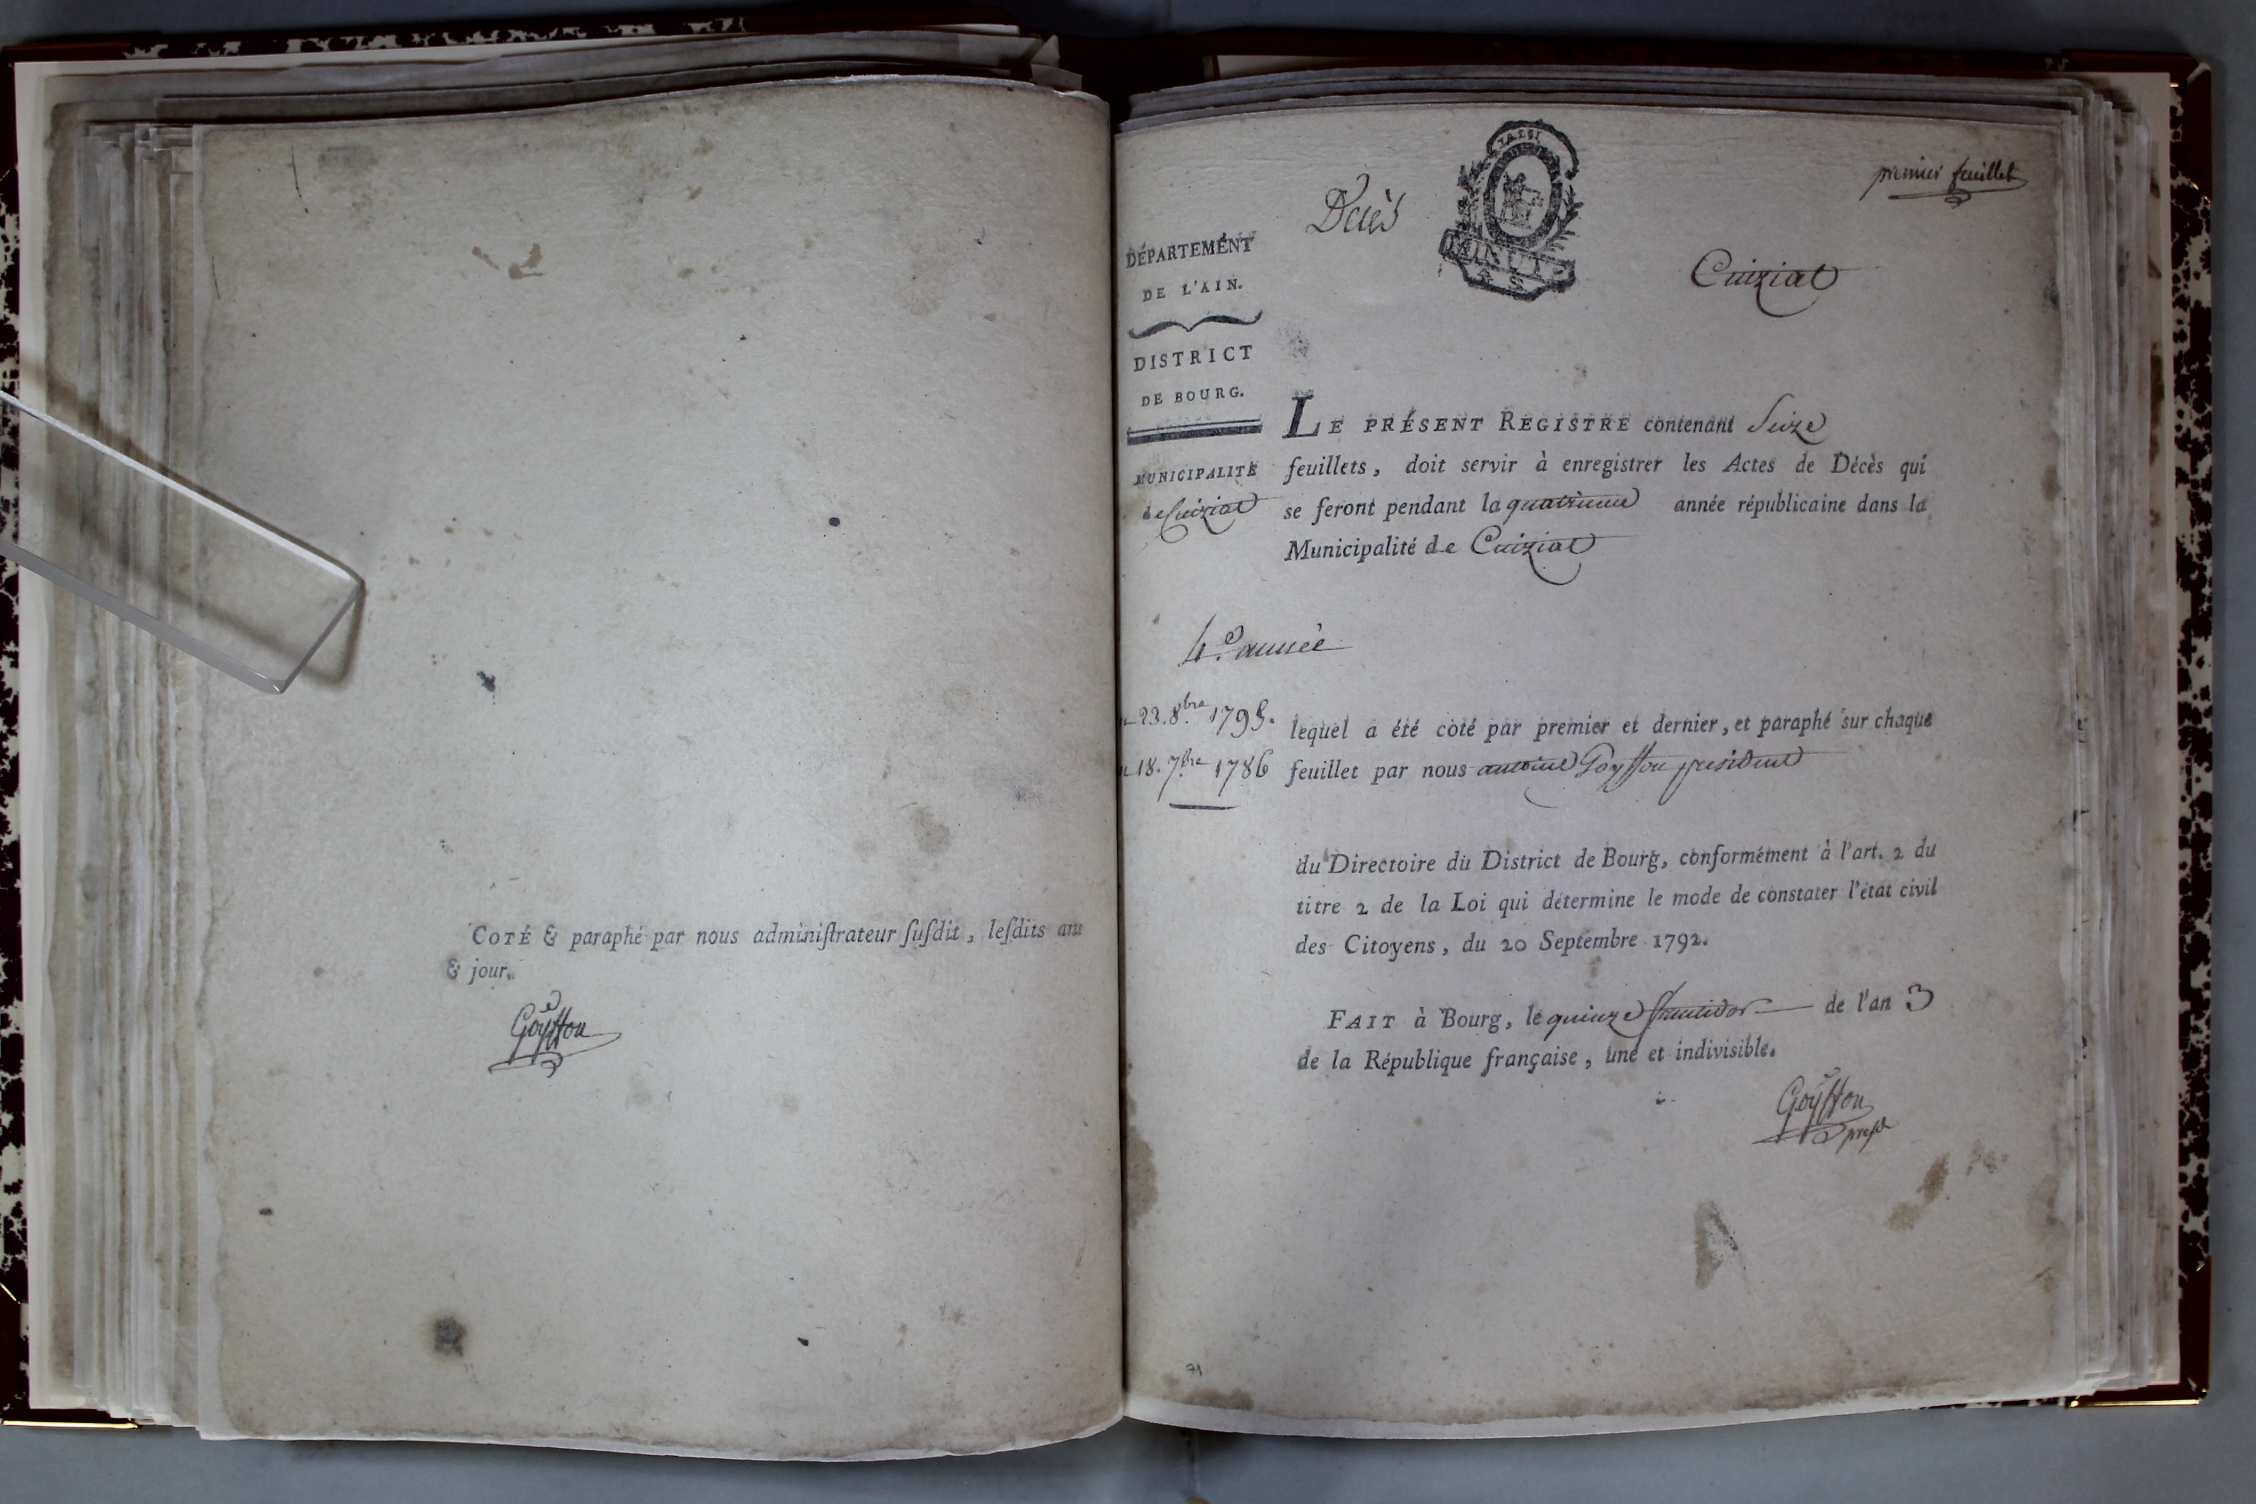 COTÉ & paraphé par nous adminiſtrateur ſuſdit, leſdits an
& jour.
Goyffon
premier feuillet
Décès
DÉPARTEMENT
DE L'AIN.
Cuiziat
DISTRICT
DE BOURG.
MUNICIPALITÉ
de Cuiziat
LE PRÉSENT REGISTRE contenant Seize
feuillets, doit servir à enregistrer les Actes de Décès qui
se feront pendant la quatrieme année républicaine dans la
Municipalité de Cuiziat
4.e année
23. 8.bre 1795.
18. 7.bre 1786
lequel a été coté par premier et dernier, et paraphé sur chaque
feuillet par nous antoine Goyffon president
du Directoire du District de Bourg, conformément à l'art. 2 du
titre 2 de la Loi qui détermine le mode de constater l'état civil
des Citoyens, du 20 Septembre 1792.
FAIT à Bourg, le quinze fructidor de l'an 3
de la République française, une et indivisible.
Goyffon
presd
71